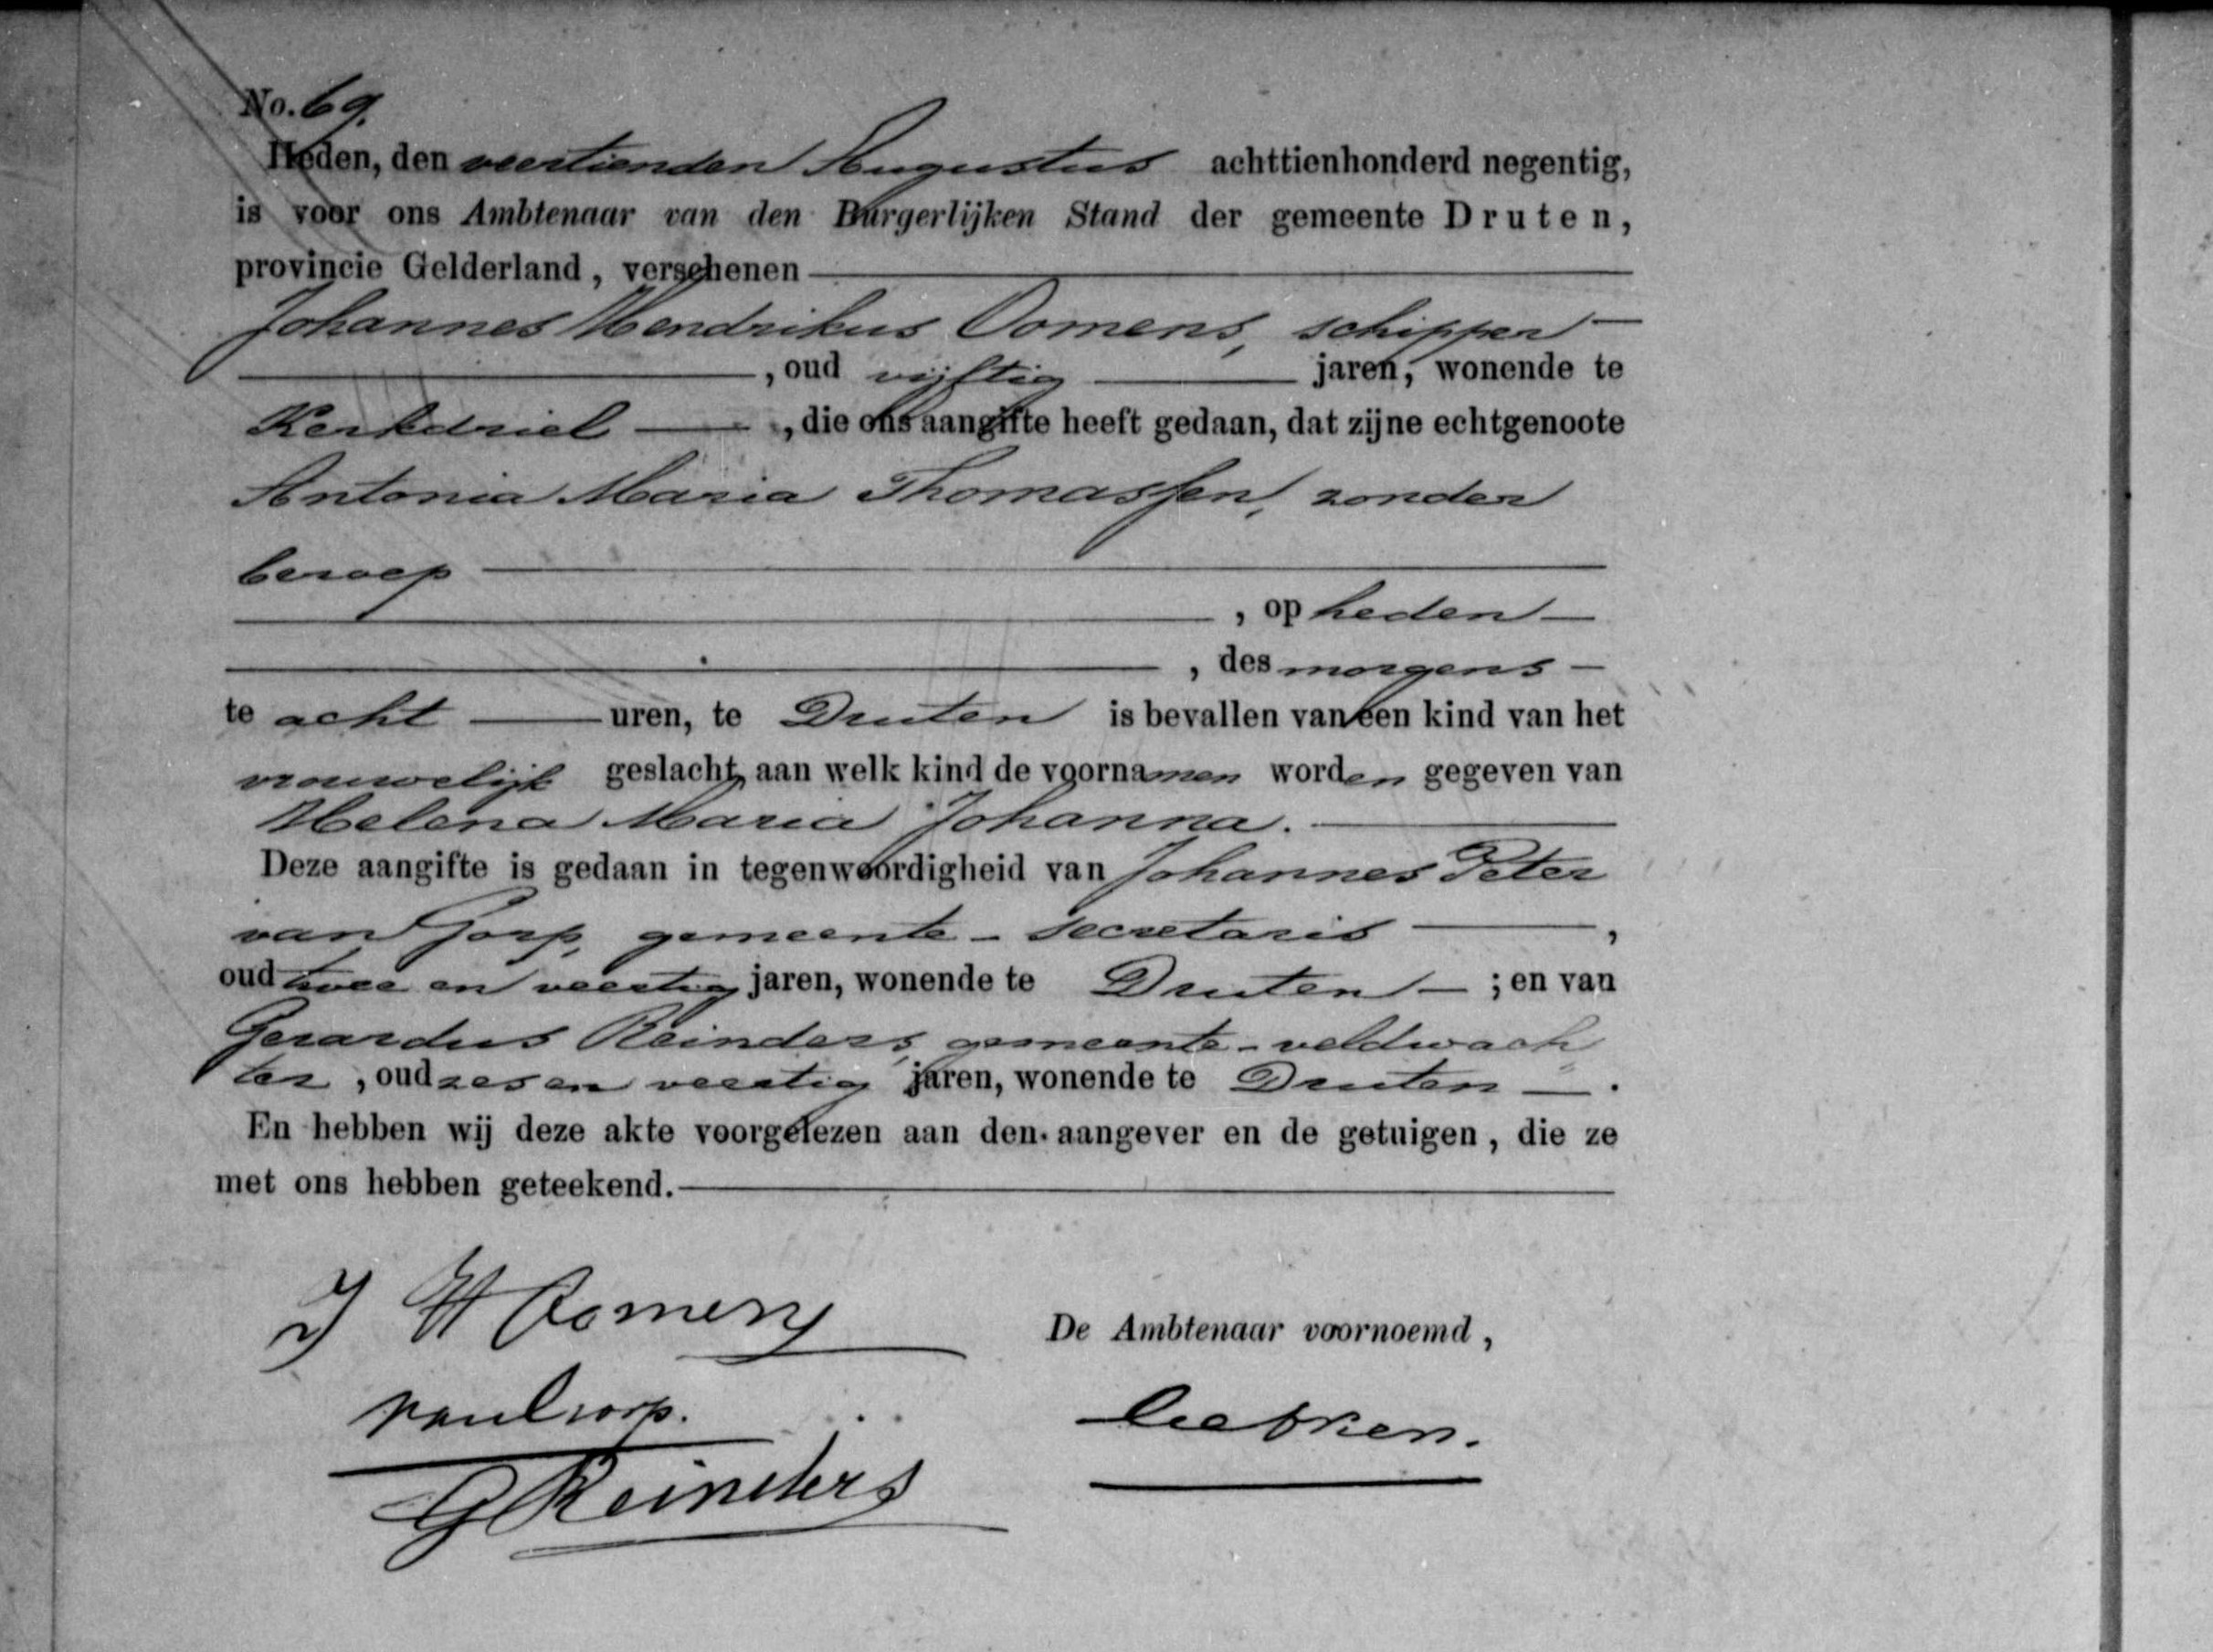 No. 69.
Heden, den veertienden Augustus achttienhonderd negentig,
is voor ons Ambtenaar van den Burgerlijken Stand der gemeente Druten,
provincie Gelderland, verschenen
Johannes Hendrikus Oomens, schipper
, oud vijftig jaren, wonende te
Kerkdriel, die ons aangifte heeft gedaan, dat zijne echtgenoote
Antonia Maria Thomassen, zonder
beroep
, op heden
, des morgens
te acht uren, te Druten is bevallen van een kind van het
vrouwelijk geslacht, aan welk kind de voornamen worden gegeven van
Helena Maria Johanna.
Deze aangifte is gedaan in tegenwoordigheid van Johannes Peter
van Gorp, gemeente-secretaris,
oud twee en veertig jaren, wonende te Druten; en van
Gerardus Reinders, gemeente-veldwach
ter, oud zes en veertig jaren, wonende te Druten.
En hebben wij deze akte voorgelezen aan den aangever en de getuigen, die ze
met ons hebben geteekend.
J H Oomens
De Ambtenaar voornoemd,
van Gorp.
G Reinders